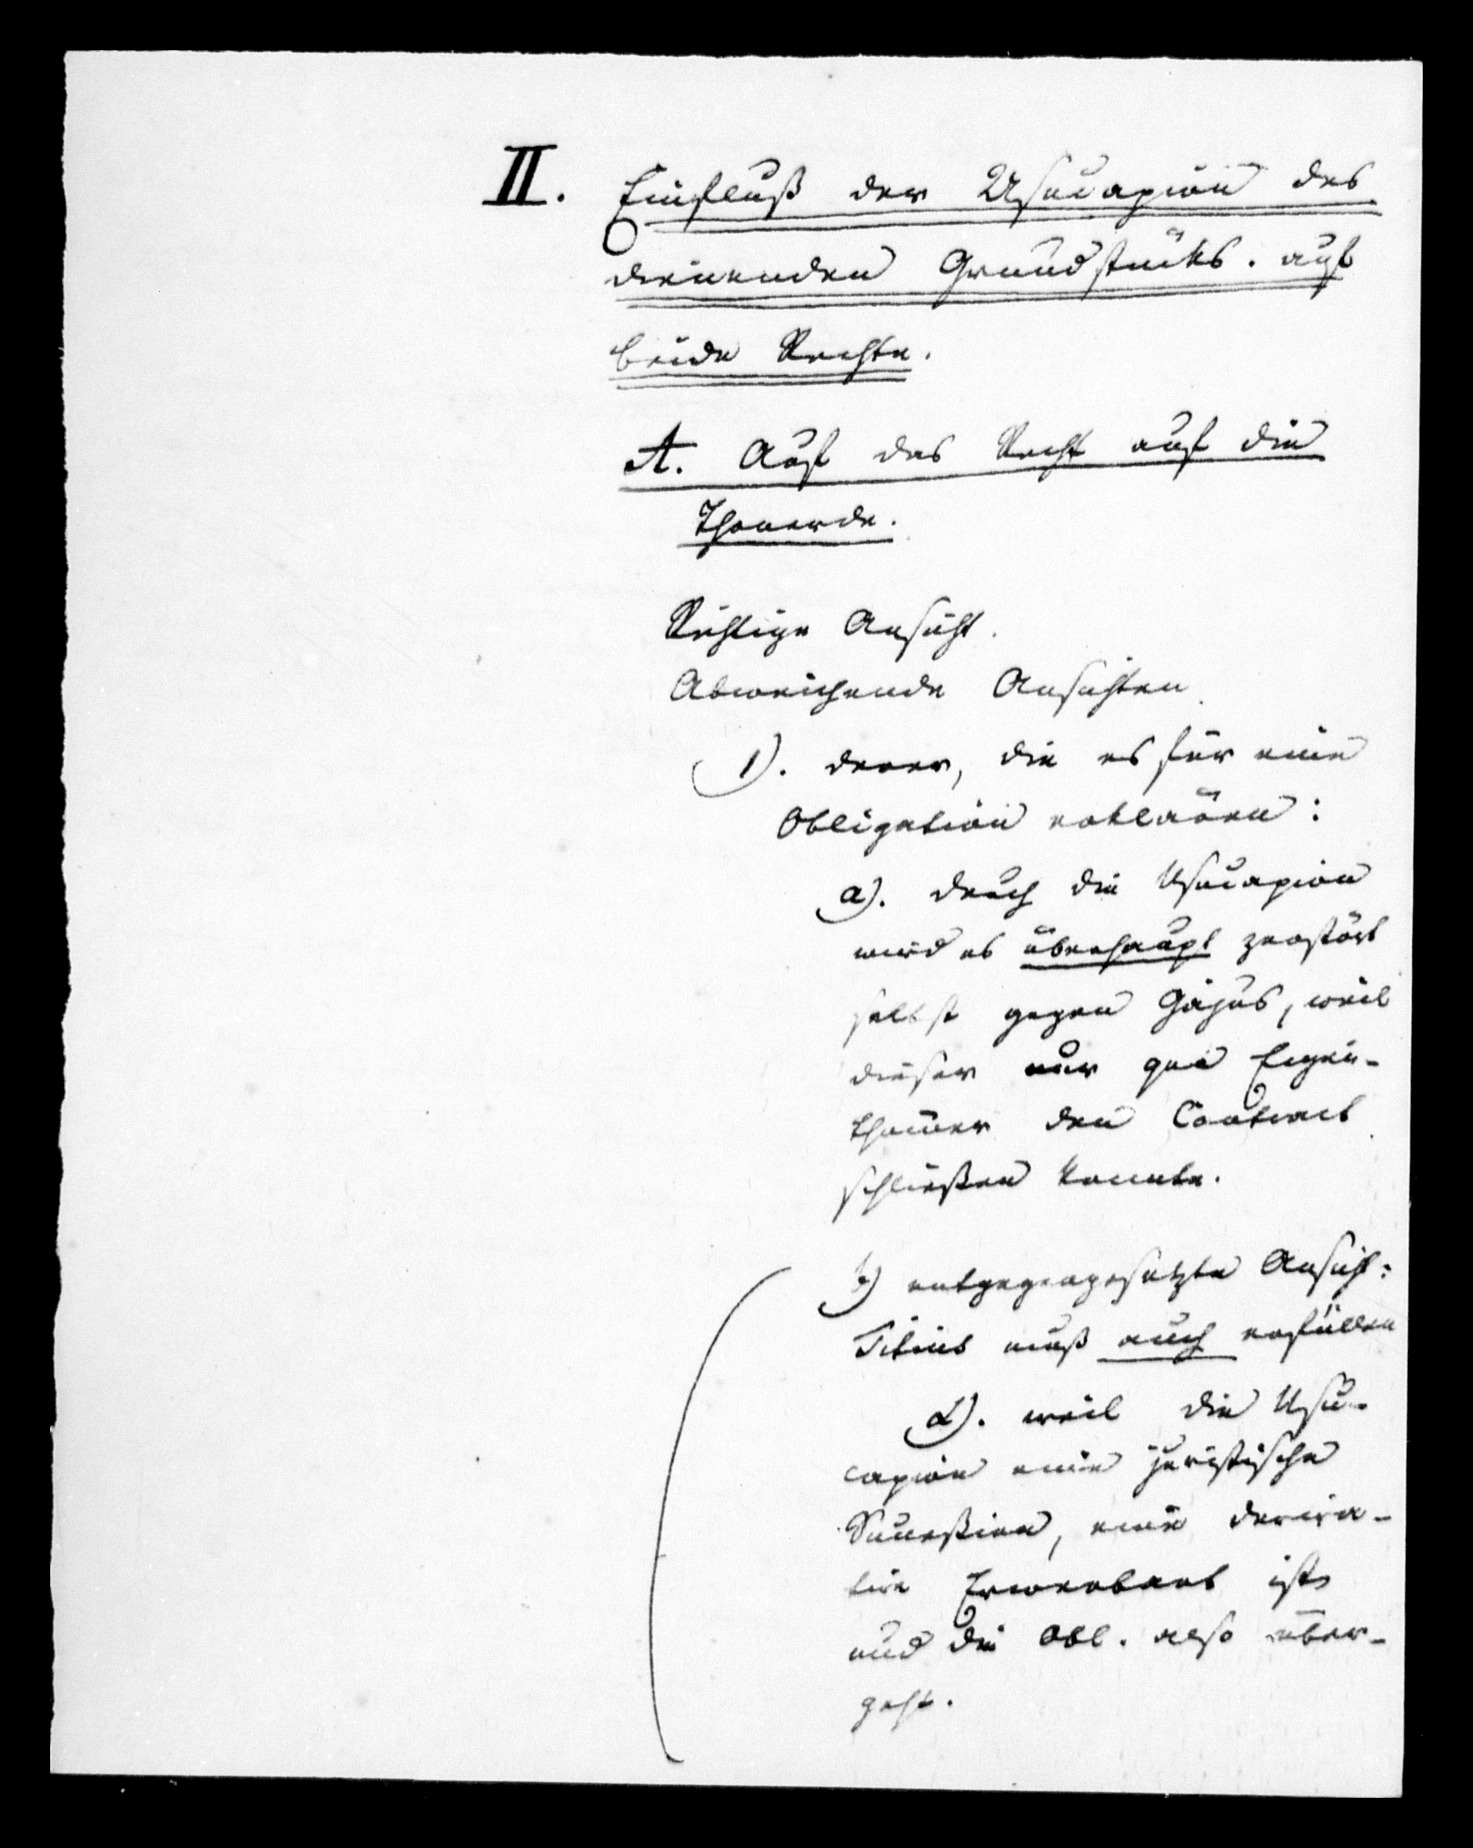 II. Einfluß der Usucapion des
dienenden Grundstücks. auf
beide Rechte.
A. Auf das Recht auf die
Thonerde.
Richtige Ansicht.
Abweichende Ansichten.
1). derer, die es für eine
Obligation erklären:
a). durch die Usucapion
wird es überhaupt zerstört
selbst gegen Gajus, weil
dieser nur qua Eigen-
thümer den Contract
schließen konnte.
b) entgegengesetzte Ansicht:
Titius muß auch erfüllen
α). weil die Usu-
capion eine juristische
Succeßion, eine deriva-
tive Erwerbart ist
und die Obl. also über-
geht.